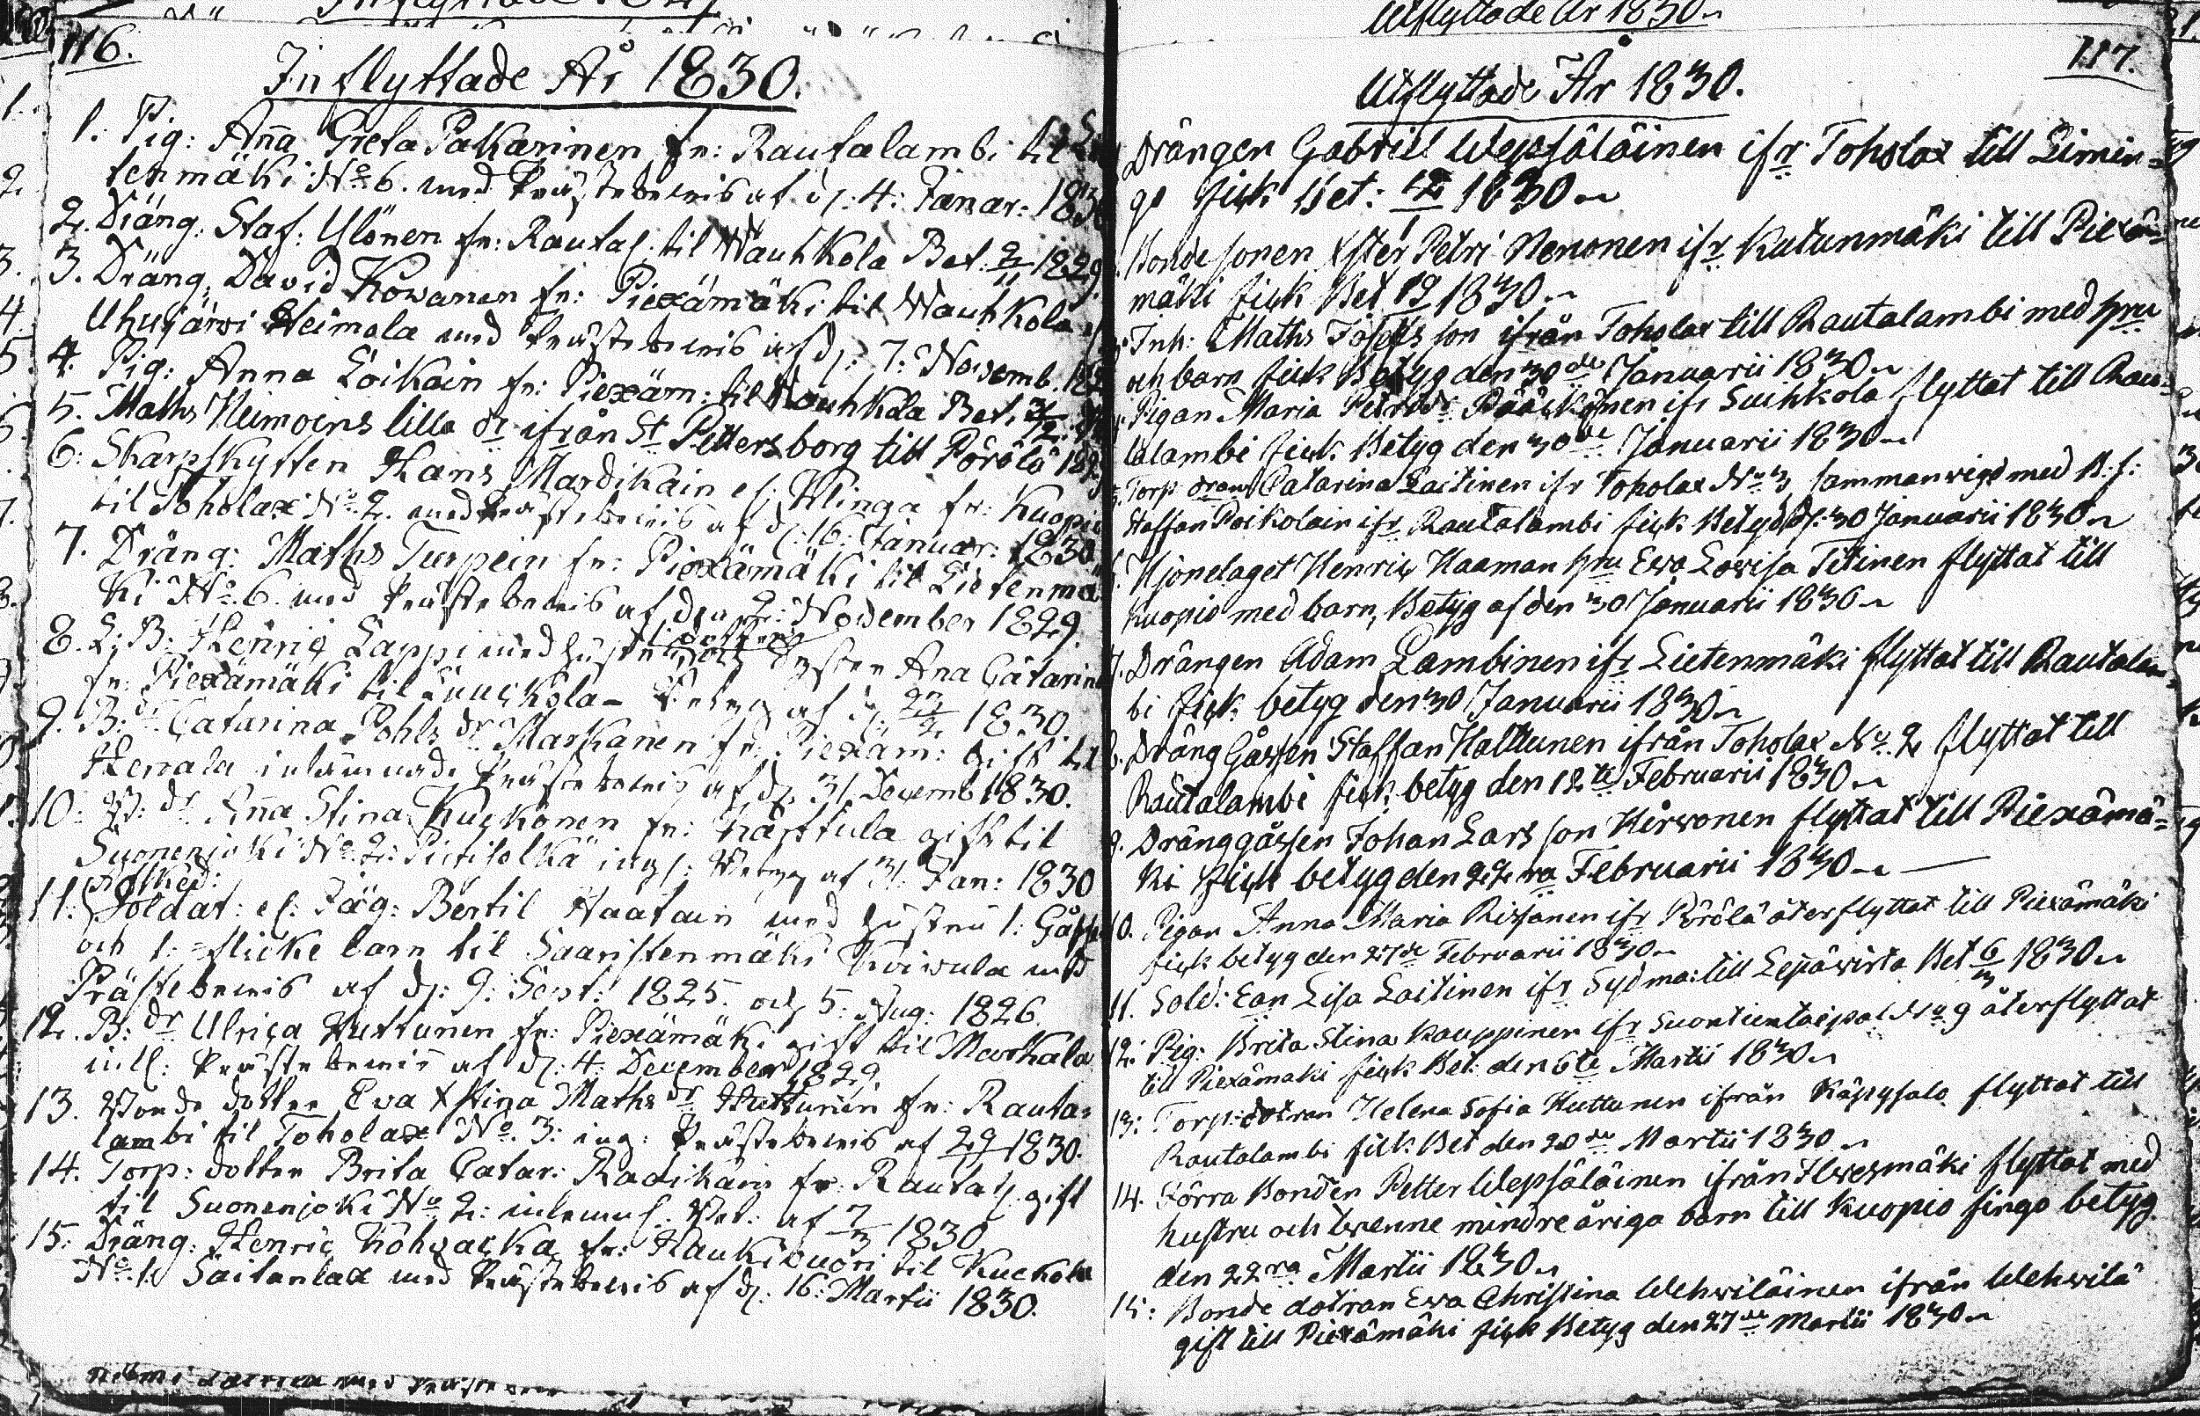 116.
Inflyttade År 1830.
1. Pig: Anna Greta Pakarinen fr: Rautalambi til
tenmäki No 6. med Prästebewis af d: 4: Januar: 183
2. Dräng: Staf: Ylönen fr: Rautal: til Wauhkola Bet. 2/11 1829.
3. Dräng. David Kowanen fr: Piexämäki til Wauhkola
Uhujärwi Heimola med Prästebewis af d: 7: Novemb. 182
4. Pig: Anna Loikain fr: Piexäm: til Wauhkola Bet.
5. Maths Heimoins lilla dr ifrån St Pettersborg till Pörölä
6: Skarpskytten Hans Mardikain el: Klinga fr: Kuopio
til Toholax No 2. med Prästebewis af d: 16: Januar: 1830.
7. Dräng: Maths Turpein fr: Piexämäki til Lietenmä
ki No 6. med Prästebewis af den 2: November 1829.
8. L: B: Henric Lappi med hustru och Ana Catarin
fr: Piexämäki til Kuckola- Betyg af d: 1830.
9. B: dr Catarina Pohls dr Markanen fr: Piexäm: gift til
Herrala inlämnade Prästebewis af d: 31. Decemb 1830.
10: B: dr Anna Stina Kuckonen fr: Karttula gift til
Suonenjoki No 2: ingf: Betyg af 31. Jan: 1830
afsked:
11: Soldat: el: Jäg: Bertil Haatain med hustru 1: Gåsse
och 1: flicke barn til Saaristenmäki Koiwula med
Prästebewis af d: 9: Sept: 1825. och 5: Aug: 1826.
12. B: dr Ulrica Huttunen fr: Piexämäki gift til Markala
inl: Prästebewis af d: 4: December 1829.
13. Bonde dotter Eva Xstina Maths dr Hutturin fr: Rauta-
lambi til Toholax No 3: ing: Prästebewis af 1830.
14. Torp: dotter Brita Catar: Radikain fr: Rautal: gift
til Suonenjoki No 2: inlemn: Bet: af 7/3 1830
15: Dräng: Henric Kohwacka fr: Haukivuori til Kuckola
No 1. Saitanlax med Prästebewis af d: 16: Martii 1830.
Utflyttade År 1830
117.
Utflyttade År 1830.
Drängen Gabriel Wepsäläinen ifr Toholax till Limin-
go fick Bet: 1830
Bonde sonen Xster Petri Nenonen ifr Kutunmäki till Piexä-
mäki fick Bet 1830
Inh: Maths Josephs son ifrån Toholax till Rautalambi med hru
och barn fick Betyg den 30de Januarii 1830
Pigan Maria Petri dr Pääskönen ifr Suihkola flyttat till Rau-
talambi fick Betyg den 30de Januarii 1830
Torp dran Catarina Laitinen ifr Toholax No 3 sammanvigd med B:s:
Staffan Poikolain ifr Rautalambi fick Betyg d: 30 Januarii 1830
Hjonelaget Henric Haaman hru Ewa Lovisa Titinen flyttat till
Kuopio med barn, Betyg af den 30 Januarii 1830
7. Drängen Adam Lambinen ifr Lietenmäki flyttat till Rautalam-
bi fick betyg den 30 Januarii 1830
8. Dräng Gåssen Staffan Halttunen ifrån Toholax No 2 flyttat till
Rautalambi fick betyg den 12te Februarii 1830
9. Dränggåssen Johan Lars son Hirvonen flyttat till Piexämä-
ki fick betyg den 22ra Februarii 1830
10. Pigan Anna Maria Risanen ifr Pörölä återflyttat till Piexämäki
fick betyg den 27de Februarii 1830
11. Sold: Ean Lisa Laitinen ifr Sydma: till Lepäwirta Bet 6/3 1830
12: Pig: Brita Stina Kauppinen ifr Suontientaipal No 9 återflyttat
till Piexämäki fick Bet: den 6te Martii 1830
13: Torp: dotran Helena Sofia Huttunen ifrån Käpysalo flyttat till
Rautalambi fick Bet den 20de Martii 1830
14. Förra Bonden Petter Wepsäläinen ifrån Ilvesmäki flyttat med
hustru och trenne mindre åriga barn till Kuopio fingo betyg
den 22ra Martii 1830
15: Bonde dotran Ewa Christina Wehwiläinen ifrån Wehwilä
gift till Piexämäki fick Betyg den 27de Martii 1830